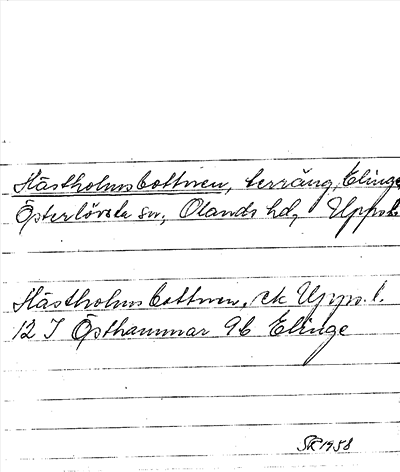 Hästholmsbottnen, terräng, Elinge
Österlövsta sn, Olands hd, Uppl.
Hästholmsbottnen, ek Upps. l.
12 I Östhammar 9b Elinge
SR 1958